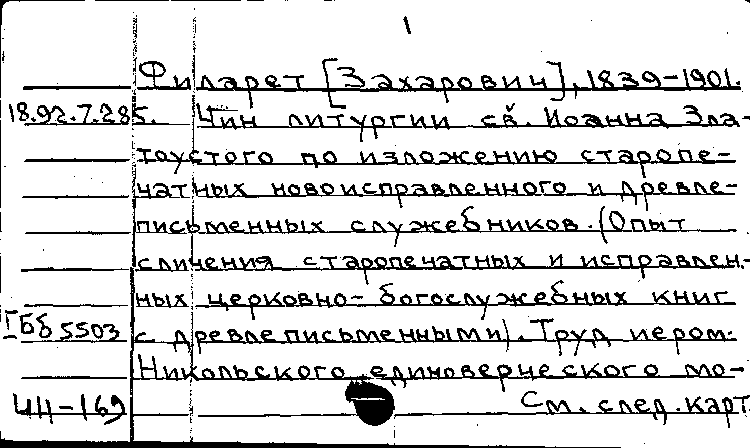 1
Филарет [Захарович], 1839-1901.
18.92.7.285. Чин литургии св. Иоанна Зла-
тоустого по изложению старопе-
чатных новоисправленного и древле-
письменных служебников. (Опыт
сличения старопечатных и исправлен-
ных церковно-богослужебных книг
ГБб 5503 с древлеписьменными). Труд иером.
Никольского единоверческого мо-
ЧЧ-169 См. след. карт